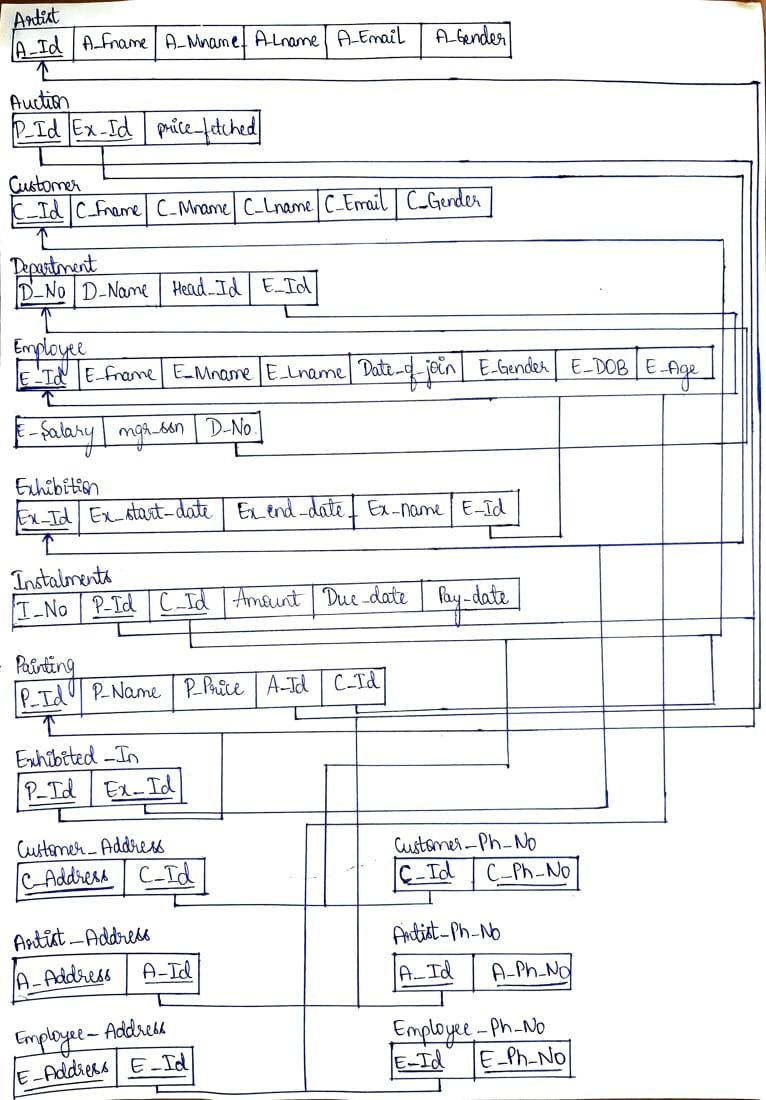 Artist
A_Id A_Fname A_Mname A_Lname A_Email A_Gender
Auction
P_Id Ex_Id price_fetched
Customer
C_Id C_Fname C_Mname C_Lname C_Email C_Gender
Department
D_No D_Name Head_Id E_Id
Employee
E_Id E_Fname E_Mname E_Lname Date_of_join E_Gender E_DOB E_Age
E_Salary mgr_ssn D_No.
Exhibition
Ex_Id Ex_start_date Ex_end_date Ex_name E_Id
Instalments
I_No P_Id C_Id Amount Due_date Pay_date
Painting
P_Id P_Name P_Price A_Id C_Id
Exhibited_In
P_Id Ex_Id
Customer_Address Customer_Ph_No
C_Address C_Id C_Id C_Ph_No
Artist_Address Artist_Ph_No
A_Address A_Id A_Id A_Ph_No
Employee_Address Employee_Ph_No
E_Address E_Id E_Id E_Ph_No